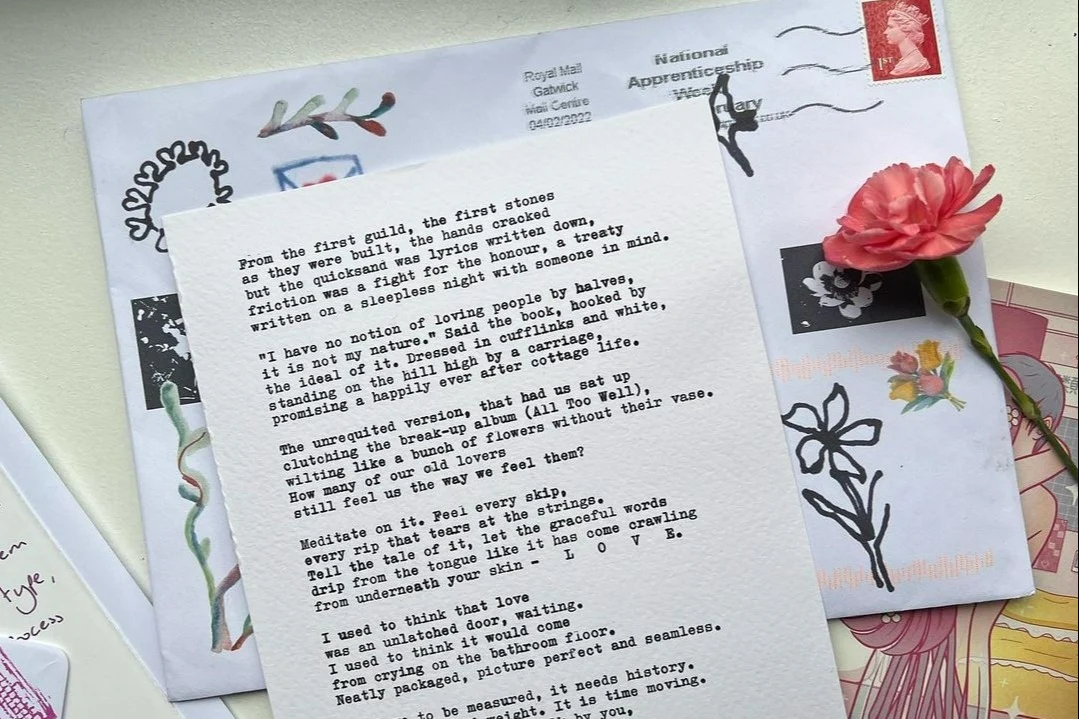 Royal Mail
Gatwick
Mail Centre
04/02/2022
National
Apprenticeship
1st
From the first guild, the first stones
as they were built, the hands cracked
but the quicksand was lyrics written down,
friction was a fight for the honour, a treaty
written on a sleepless night with someone in mind.
"I have no notion of loving people by halves,
it is not my nature." Said the book, hooked by
the ideal of it. Dressed in cufflinks and white,
standing on the hill high by a carriage,
promising a happily ever after cottage life.
The unrequited version, that had us sat up
clutching the break-up album (All Too Well),
wilting like a bunch of flowers without their vase.
How many of our old lovers
still feel us the way we feel them?
Meditate on it. Feel every skip,
every rip that tears at the strings.
Tell the tale of it, let the graceful words
drip from the tongue like it has come crawling
from underneath your skin - L O V E.
I used to think that love
was an unlatched door, waiting.
I used to think it would come
from crying on the bathroom floor.
Neatly packaged, picture perfect and seamless.
to be measured, it needs history.
weight. It is time moving.
by you,
type,